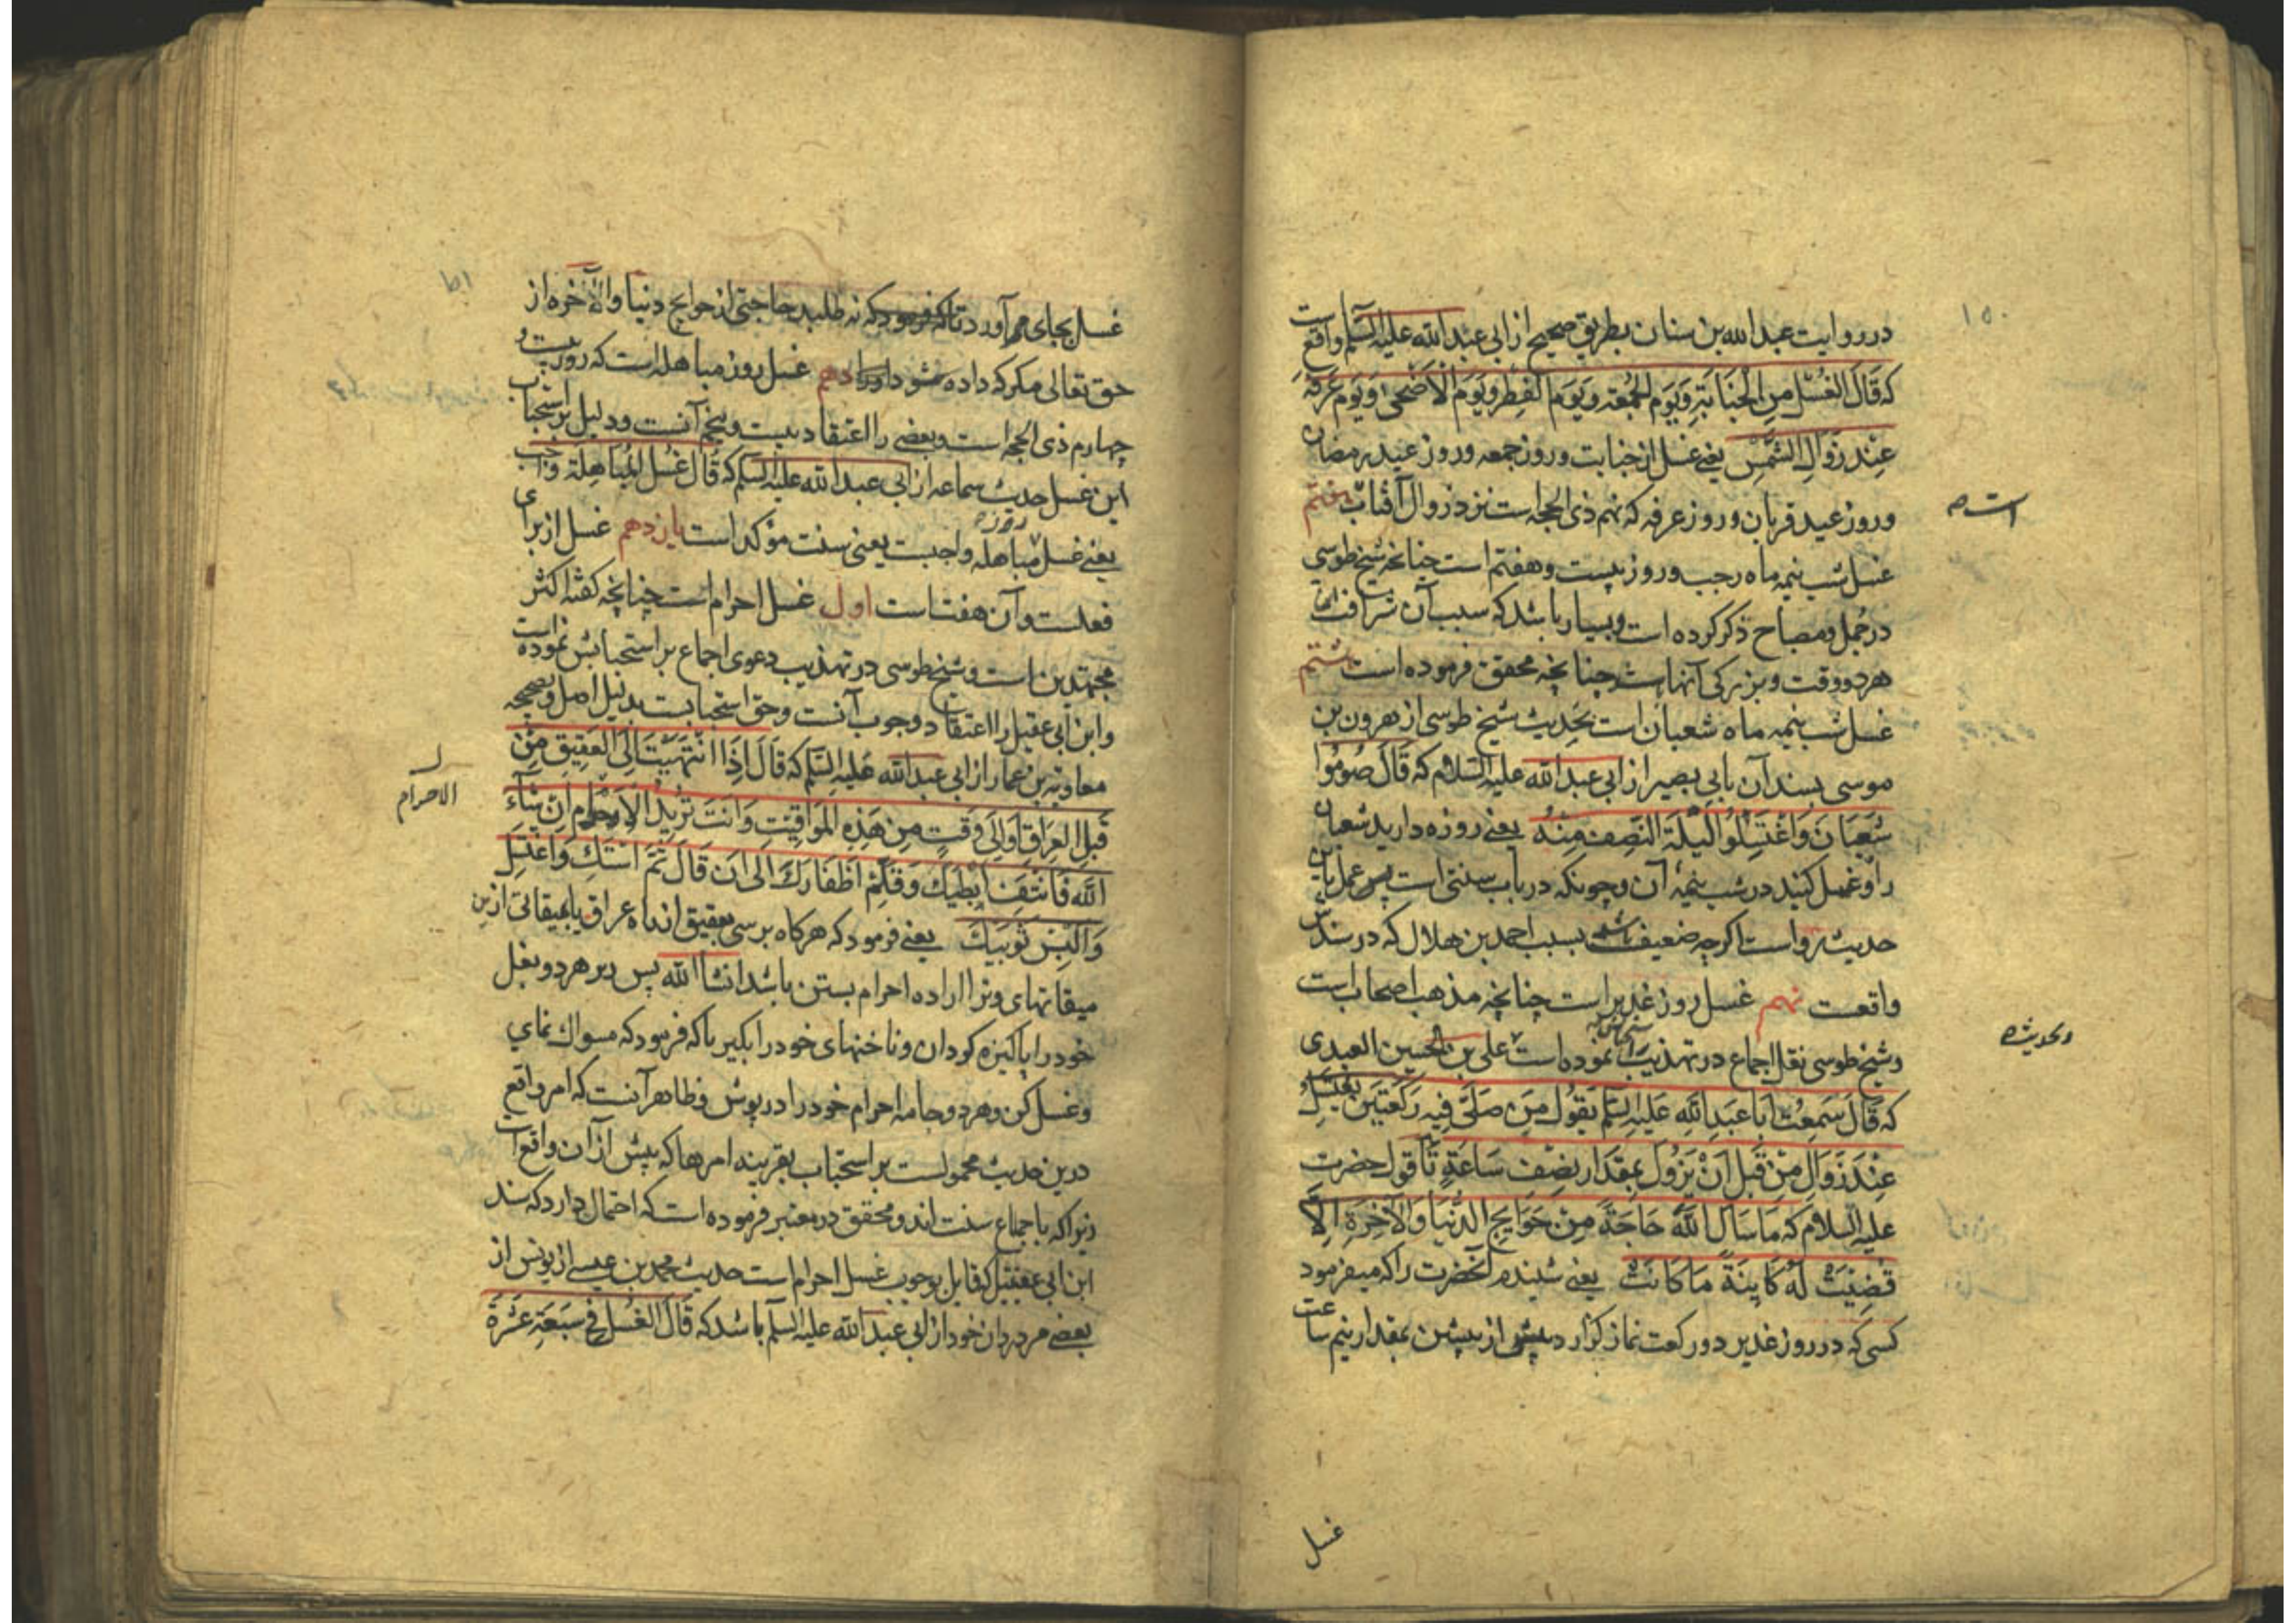 ۱۵۰
در روایت عبدالله بن سنان بطریق صحیح از ابی عبدالله علیه السلم واقع است
که قَالَ الغُسْلُ مِنَ الْجَنَابَةِ وَیَوْمَ الْجُمُعَةِ وَیَوْمَ الْفِطْرِ وَیَوْمَ الْاَضْحٰی وَیَوْمَ عَرَفَةَ
عِنْدَ زَوَالِ الشَّمْسِ یعنی غسل از جنابت و روز جمعه و روز عید رمضان
و روز عید قربان و روز عرفه که نهم ذی الحجه است نزد زوال آفتاب هفتم
است
غسل شب نیمه ماه رجب و روز بیست و هفتم است چنانچه شیخ طوسی
در جمل و مصباح ذکر کرده است و بسیار باشد که سبب آن شرافت این
هر دو وقت و بزرکی آنها باشد چنانچه محقق فرموده است هشتم
غسل شب نیمه ماه شعبان است بحدیث شیخ طوسی از هرون بن
موسی بسند آن بابی بصیر از ابی عبدالله علیه السلام که قَالَ صُومُوا
شَعْبَانَ وَاغْتَسِلُوا لَیْلَةَ النِّصْفِ مِنْهُ یعنی روزه دارید شعبان
را و غسل کنید در شب نیمهٔ آن و چونکه در باب سنتی است پس عمل باین
حدیث رواست اکرچه ضعیف باشد بسبب احمد بن هلال که در سندش
واقعست نهم غسل روز غدیر است چنانچه مذهب اصحاب است
و شیخ طوسی نقل اجماع در تهذیب بر استحبابش نموده است علی بن الحسین العبدی
وبحدیث
که قَالَ سَمِعْتُ اَبَا عَبْدِاللّٰهِ عَلَیْهِ السَّلم یَقُولُ مَنْ صَلّٰی فِیهِ رَکْعَتَیْنِ یَغْتَسِلُ
عِنْدَ زَوَالِ مِنْ قَبْلِ اَنْ یَزُولَ بِمِقْدَارِ نِصْفِ سَاعَةٍ تا قول حضرت
علیه السلام که مَا سَاَلَ اللّٰهَ حَاجَةً مِنْ حَوَایِجِ الدُّنْیَا وَالْآخِرَةِ اِلَّا
قُضِیَتْ لَهُ کَایِنَةً مَا کَانَتْ یعنی شنیدم آنحضرت را که میفرمود
کسی که در روز غدیر دو رکعت نماز کزارد پیش از پیشین بمقدار نیم ساعت
غسل
۱۵۱
غسل بجای آورد تا که فرمود که نه طلبد حاجتی از حوایج دنیا والآخره از
حق تعالی مکر که داده شود اورا دهم غسل روز مباهله است که روز بیست و
چهارم ذی الحجه است و بعضی را اعتقاد بیست و پنجم آنست و دلیل بر استحباب
این غسل حدیث سماعه از ابی عبدالله علیه السلم که قَالَ غُسْلُ الْمُبَاهِلَةِ وَاجِبٌ
یعنی غسل روز مباهله واجبست یعنی سنت مؤکد است یازدهم غسل از برای
فعلست و آن هفت است اول غسل احرام است چنانچه کفته اکثر
مجتهدین است و شیخ طوسی در تهذیب دعوی اجماع بر استحبابش نموده است
و ابن ابی عقیل را اعتقاد وجوب آنست و حق استحبابست بدلیل اصل و صحیحه
معاویة بن عمار از ابی عبدالله عَلَیْهِ السَّلم که قَالَ اِذَا انْتَهَیْتَ اِلَی الْعَقِیقِ مِنْ
قِبَلِ الْعِرَاقِ اَوْ اِلٰی وَقْتٍ مِنْ هٰذِهِ الْمَوَاقِیتِ وَاَنْتَ تُرِیدُ الْاِحْرَامَ اِنْ شَآءَ
الاحرام
اللّٰه فَانْتِفْ اِبْطَیْكَ وَقَلِّمْ اَظْفَارَكَ الی اَن قَالَ ثُمَّ اسْتَكْ وَاغْتَسِلْ
وَالْبَسْ ثَوْبَیْكَ یعنی فرمود که هرکاه برسی بعقیق از راه عراق یا بمیقاتی از این
میقاتهای و ترا اراده احرام بستن باشد انشا الله پس زیر هر دو بغل
خود را پاکیزه کردان و ناخنهای خود را بکیر تا که فرمود که مسواك نمای
و غسل کن و هر دو جامه احرام خود را در پوش و ظاهر آنست که امر واقع
درین حدیث محمولست بر استحباب بقرینه امرها که پیش از آن واقع است
زیرا که باجماع سنت اند و محقق در معتبر فرموده است که احتمال دارد که سند
ابن ابی عقیل که قایل بوجوب غسل احرام است حدیث محمد بن عیسی از یونس از
بعضی مردمان خود از ابی عبدالله علیه السلم باشد که قَالَ الْغُسْلُ فِی سَبْعَةَ عَشَرَةَ